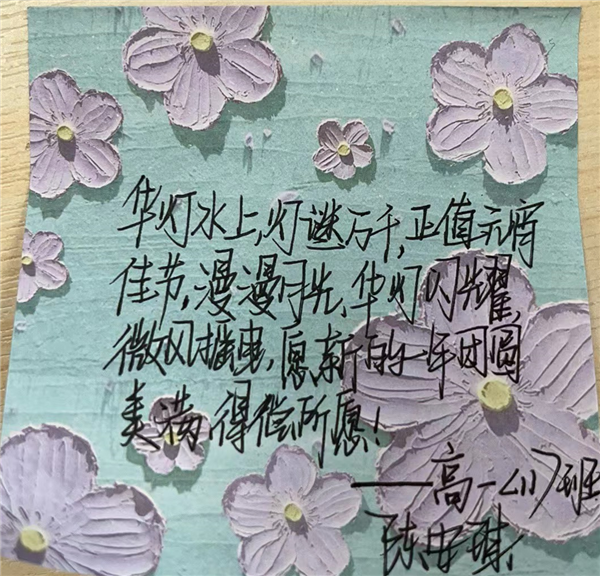 华灯水上,灯谜万千,正值元宵
佳节,漫漫月光、华灯闪耀,
微风摇曳,愿新的一年团圆
美满,得偿所愿!
——高一(1)班
陈安琪